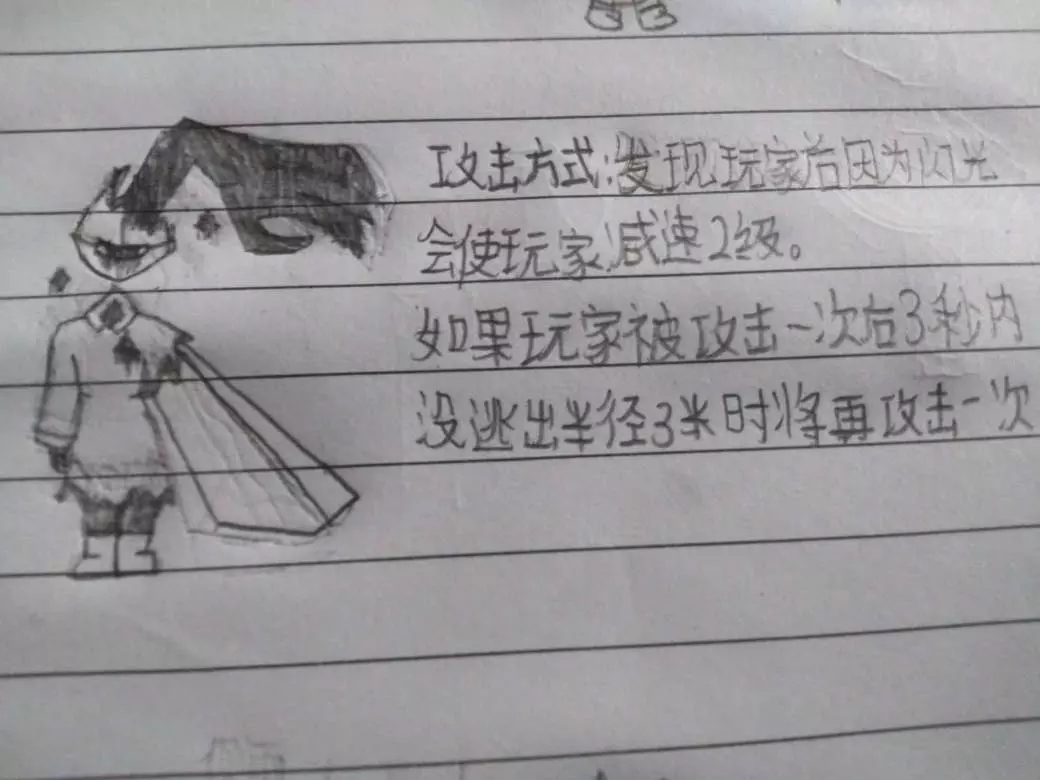 攻击方式:发现玩家后因为闪光
会使玩家减速2级。
如果玩家被攻击一次后3秒内
没逃出半径3米时将再攻击一次